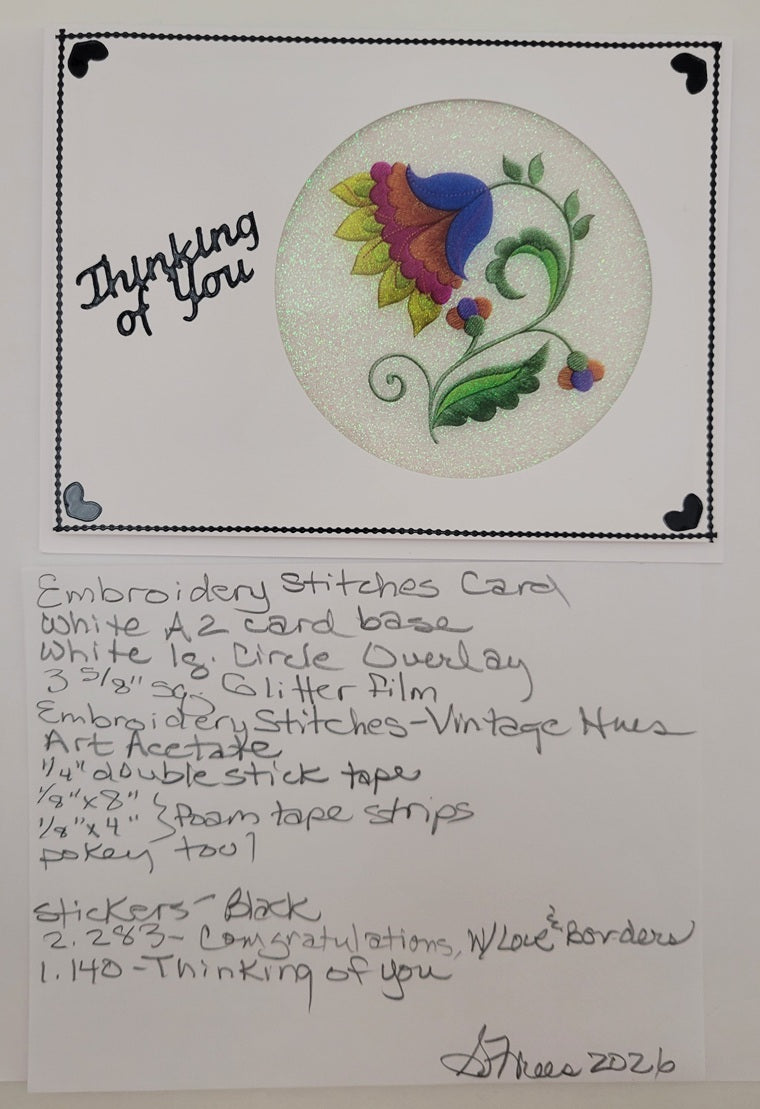 Thinking
of You
Embroidery Stitches Card
White A2 card base
White lg. Circle Overlay
3 5/8" sq. Glitter Film
Embroidery Stitches-Vintage Hues
Art Acetate
1/4" double stick tape
1/8" x 8"
1/8" x 4" } Foam tape strips
pokey tool
Stickers - Black
2.283 - Congratulations, W/Love & Borders
1.140 - Thinking of you
2026